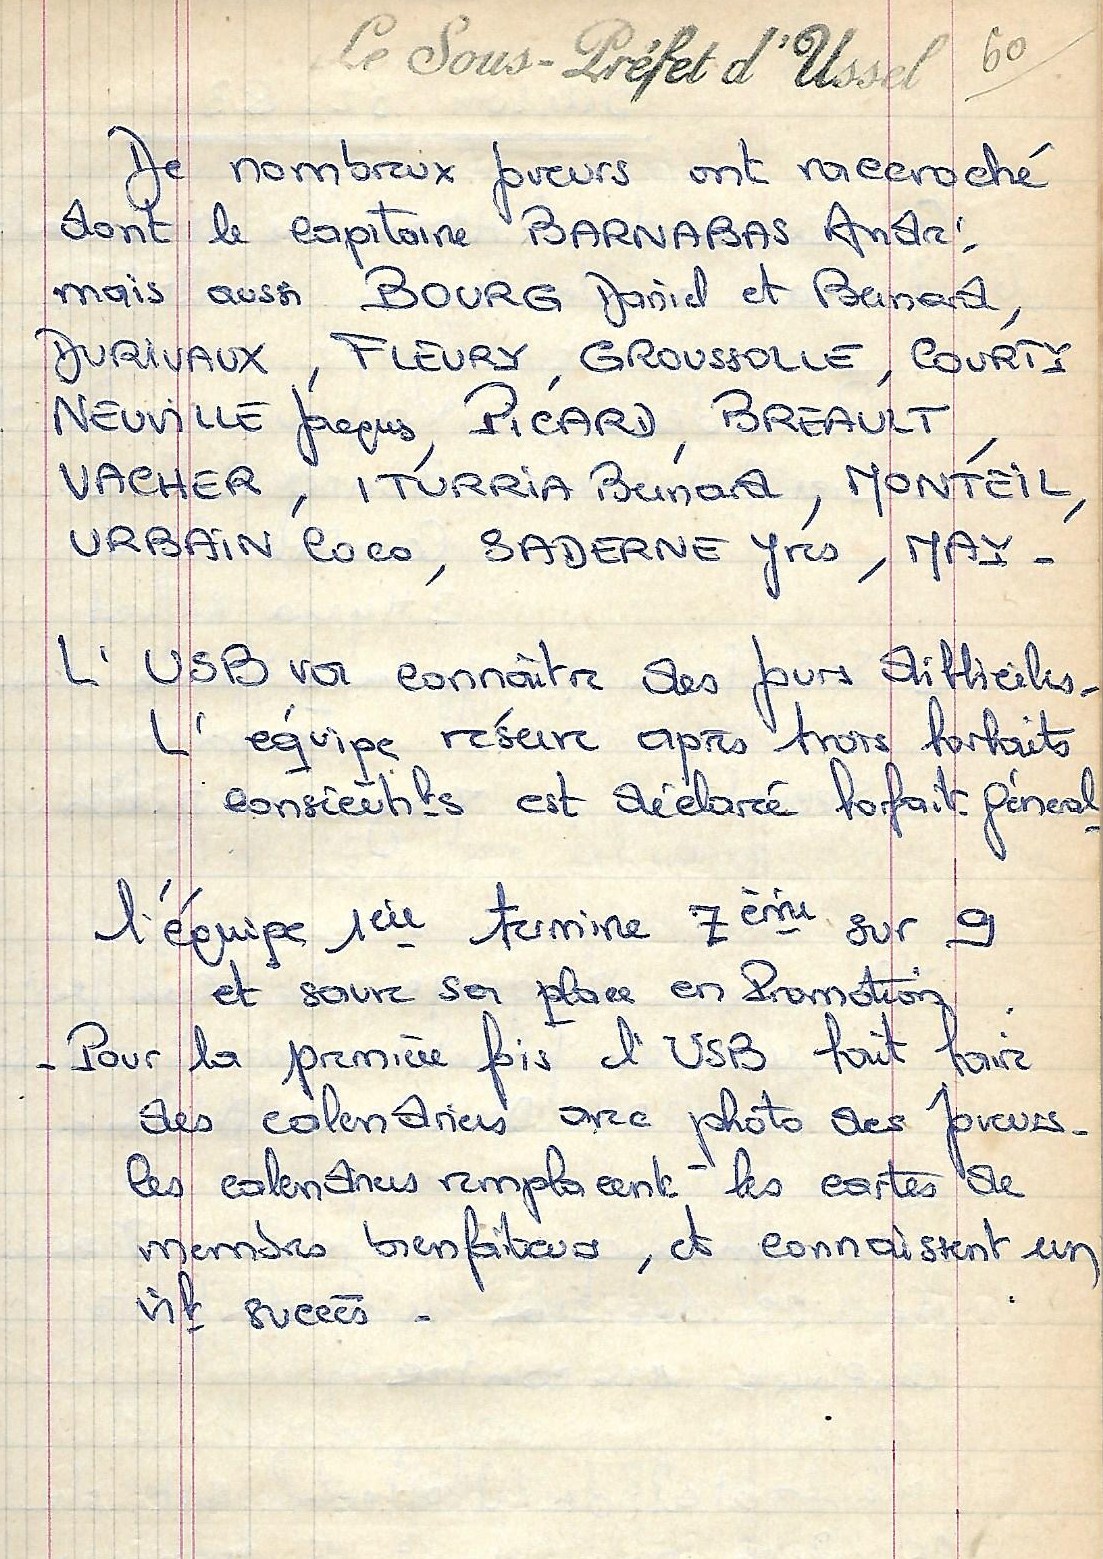 Le Sous-Préfet d'Ussel 60
De nombreux joueurs ont raccroché
dont le capitaine BARNABAS André,
mais aussi BOURG Daniel et Bernard,
DURIVAUX, FLEURY, GROUSSOLLE, COURTY
NEUVILLE Jacques, PICARD, BREAULT,
VACHER, ITURRIA Bernard, MONTEIL,
URBAIN Coco, SADERNE Yves, MAY -
L'USB va connaître des jours difficiles -
L'équipe réserve après trois forfaits
consécutifs est déclaré forfait général -
l'équipe 1ère termine 7ème sur 9
et sauve sa place en Promotion
- Pour la première fois l'USB fait faire
des calendriers avec photo des joueurs -
les calendriers remplacent les cartes de
membres bienfaiteurs, et connaissent un
succès -